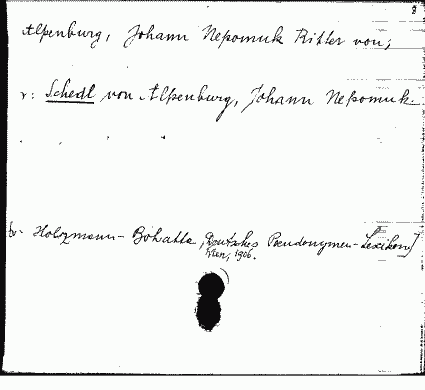 Alpenburg, Johann Nepomuk Ritter von,
v: Schedl von Alpenburg, Johann Nepomuk.
Holzmann-Bohatta, Deutsches Pseudonymen-Lexikon]
Wien, 1906.